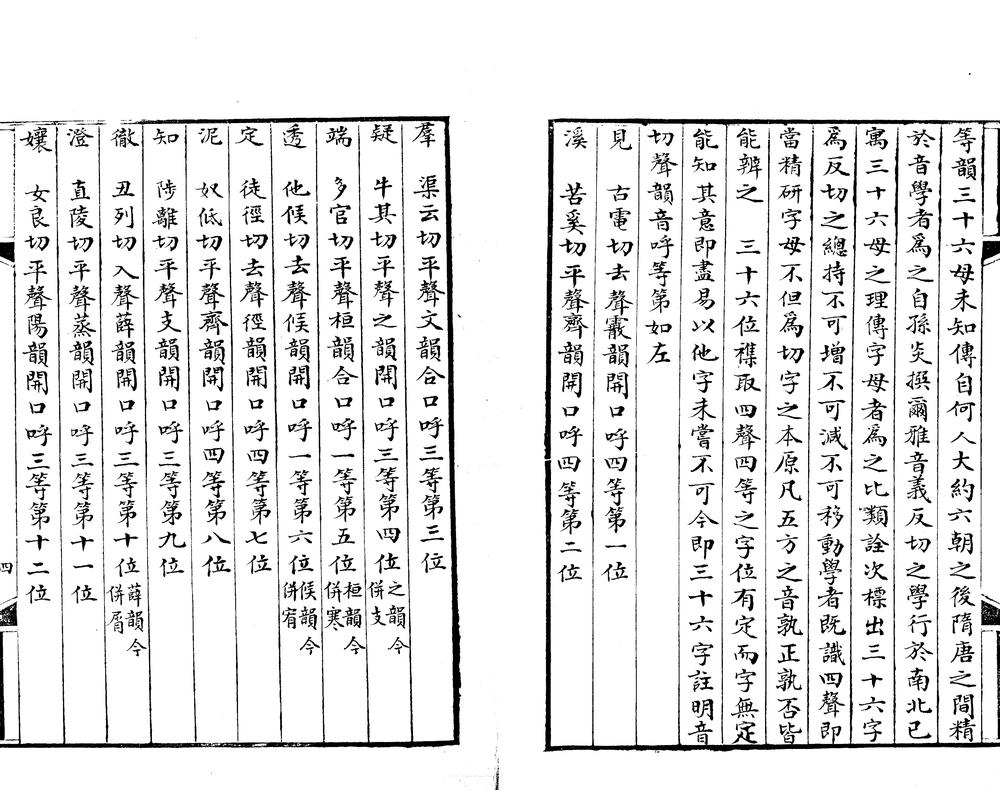 等韻三十六母未知傳自何人大約六朝之後隋唐之間精
於音學者爲之自孫炎撰爾雅音義反切之學行於南北已
寓三十六母之理傳字母者爲之比類詮次標出三十六字
爲反切之總持不可增不可減不可移動學者既識四聲即
當精研字母不但爲切字之本原凡五方之音孰正孰否皆
能辨之　三十六位襍取四聲四等之字位有定而字無定
能知其意即盡易以他字未嘗不可今即三十六字註明音
切聲韻音呼等第如左
見　古電切去聲霰韻開口呼四等第一位
溪　苦奚切平聲齊韻開口呼四等第二位
羣　渠云切平聲文韻合口呼三等第三位
疑　牛其切平聲之韻開口呼三等第四位之韻今併支
端　多官切平聲桓韻合口呼一等第五位桓韻今併寒
透　他候切去聲候韻開口呼一等第六位候韻今併宥
定　徒徑切去聲徑韻開口呼四等第七位
泥　奴低切平聲齊韻開口呼四等第八位
知　陟離切平聲支韻開口呼三等第九位
徹　丑列切入聲薛韻開口呼三等第十位薛韻今併屑
澄　直陵切平聲蒸韻開口呼三等第十一位
孃　女良切平聲陽韻開口呼三等第十二位
四